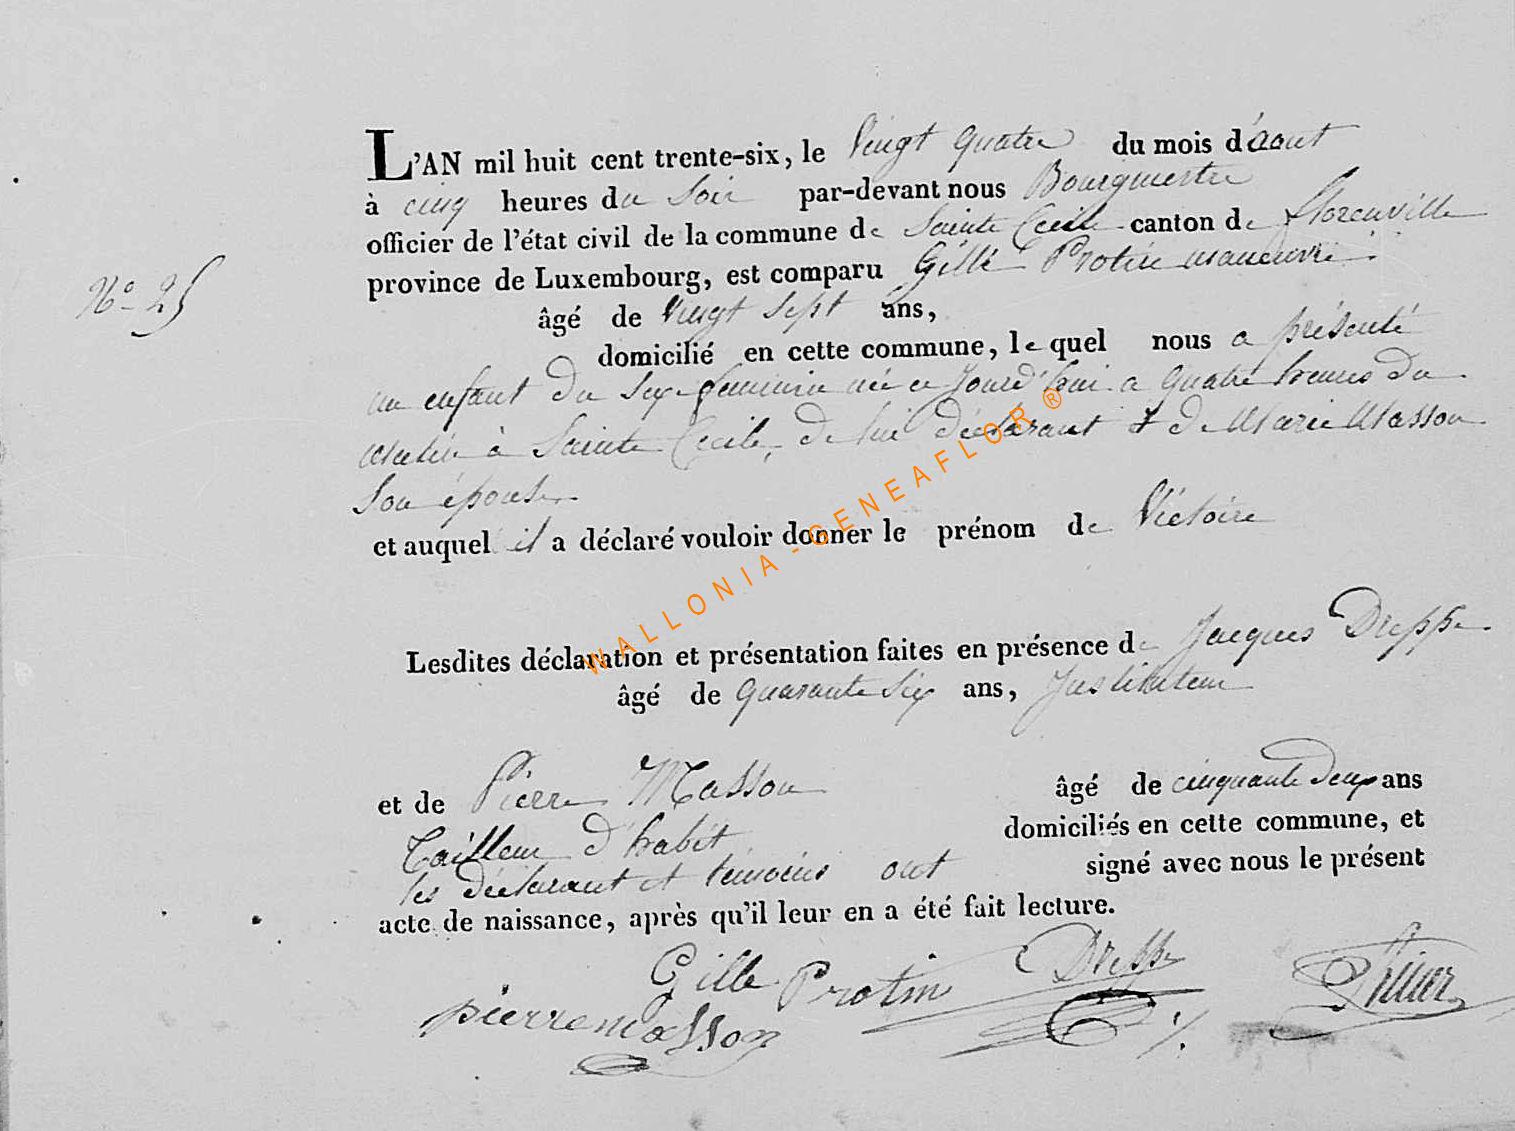 L'AN mil huit cent trente-six, le Vingt quatre du mois d'aout
à cinq heures du Soir par-devant nous Bourgmestre
officier de l'état civil de la commune de Sainte Cecile canton de florenville
province de Luxembourg, est comparu Gille Protin manoeuvre
N° 25
âgé de Vingt Sept ans,
domicilié en cette commune, le quel nous a présenté
un enfant du Sexe feminin née ce jourd'hui a quatre heures du
matin à Sainte Cecile, de lui déclarant & de Marie Masson
Son épouse
et auquel il a déclaré vouloir donner le prénom de Victoire
Lesdites déclaration et présentation faites en présence de Jacques Dreppe
âgé de quarante Six ans, Instituteur
et de Pierre Masson âgé de cinquante deux ans
Tailleur d'habit domiciliés en cette commune, et
les déclarant et témoins ont signé avec nous le présent
acte de naissance, après qu'il leur en a été fait lecture.
Gille Protin Dreppe
pierre masson
WALLONIA-GENEAFLOR®